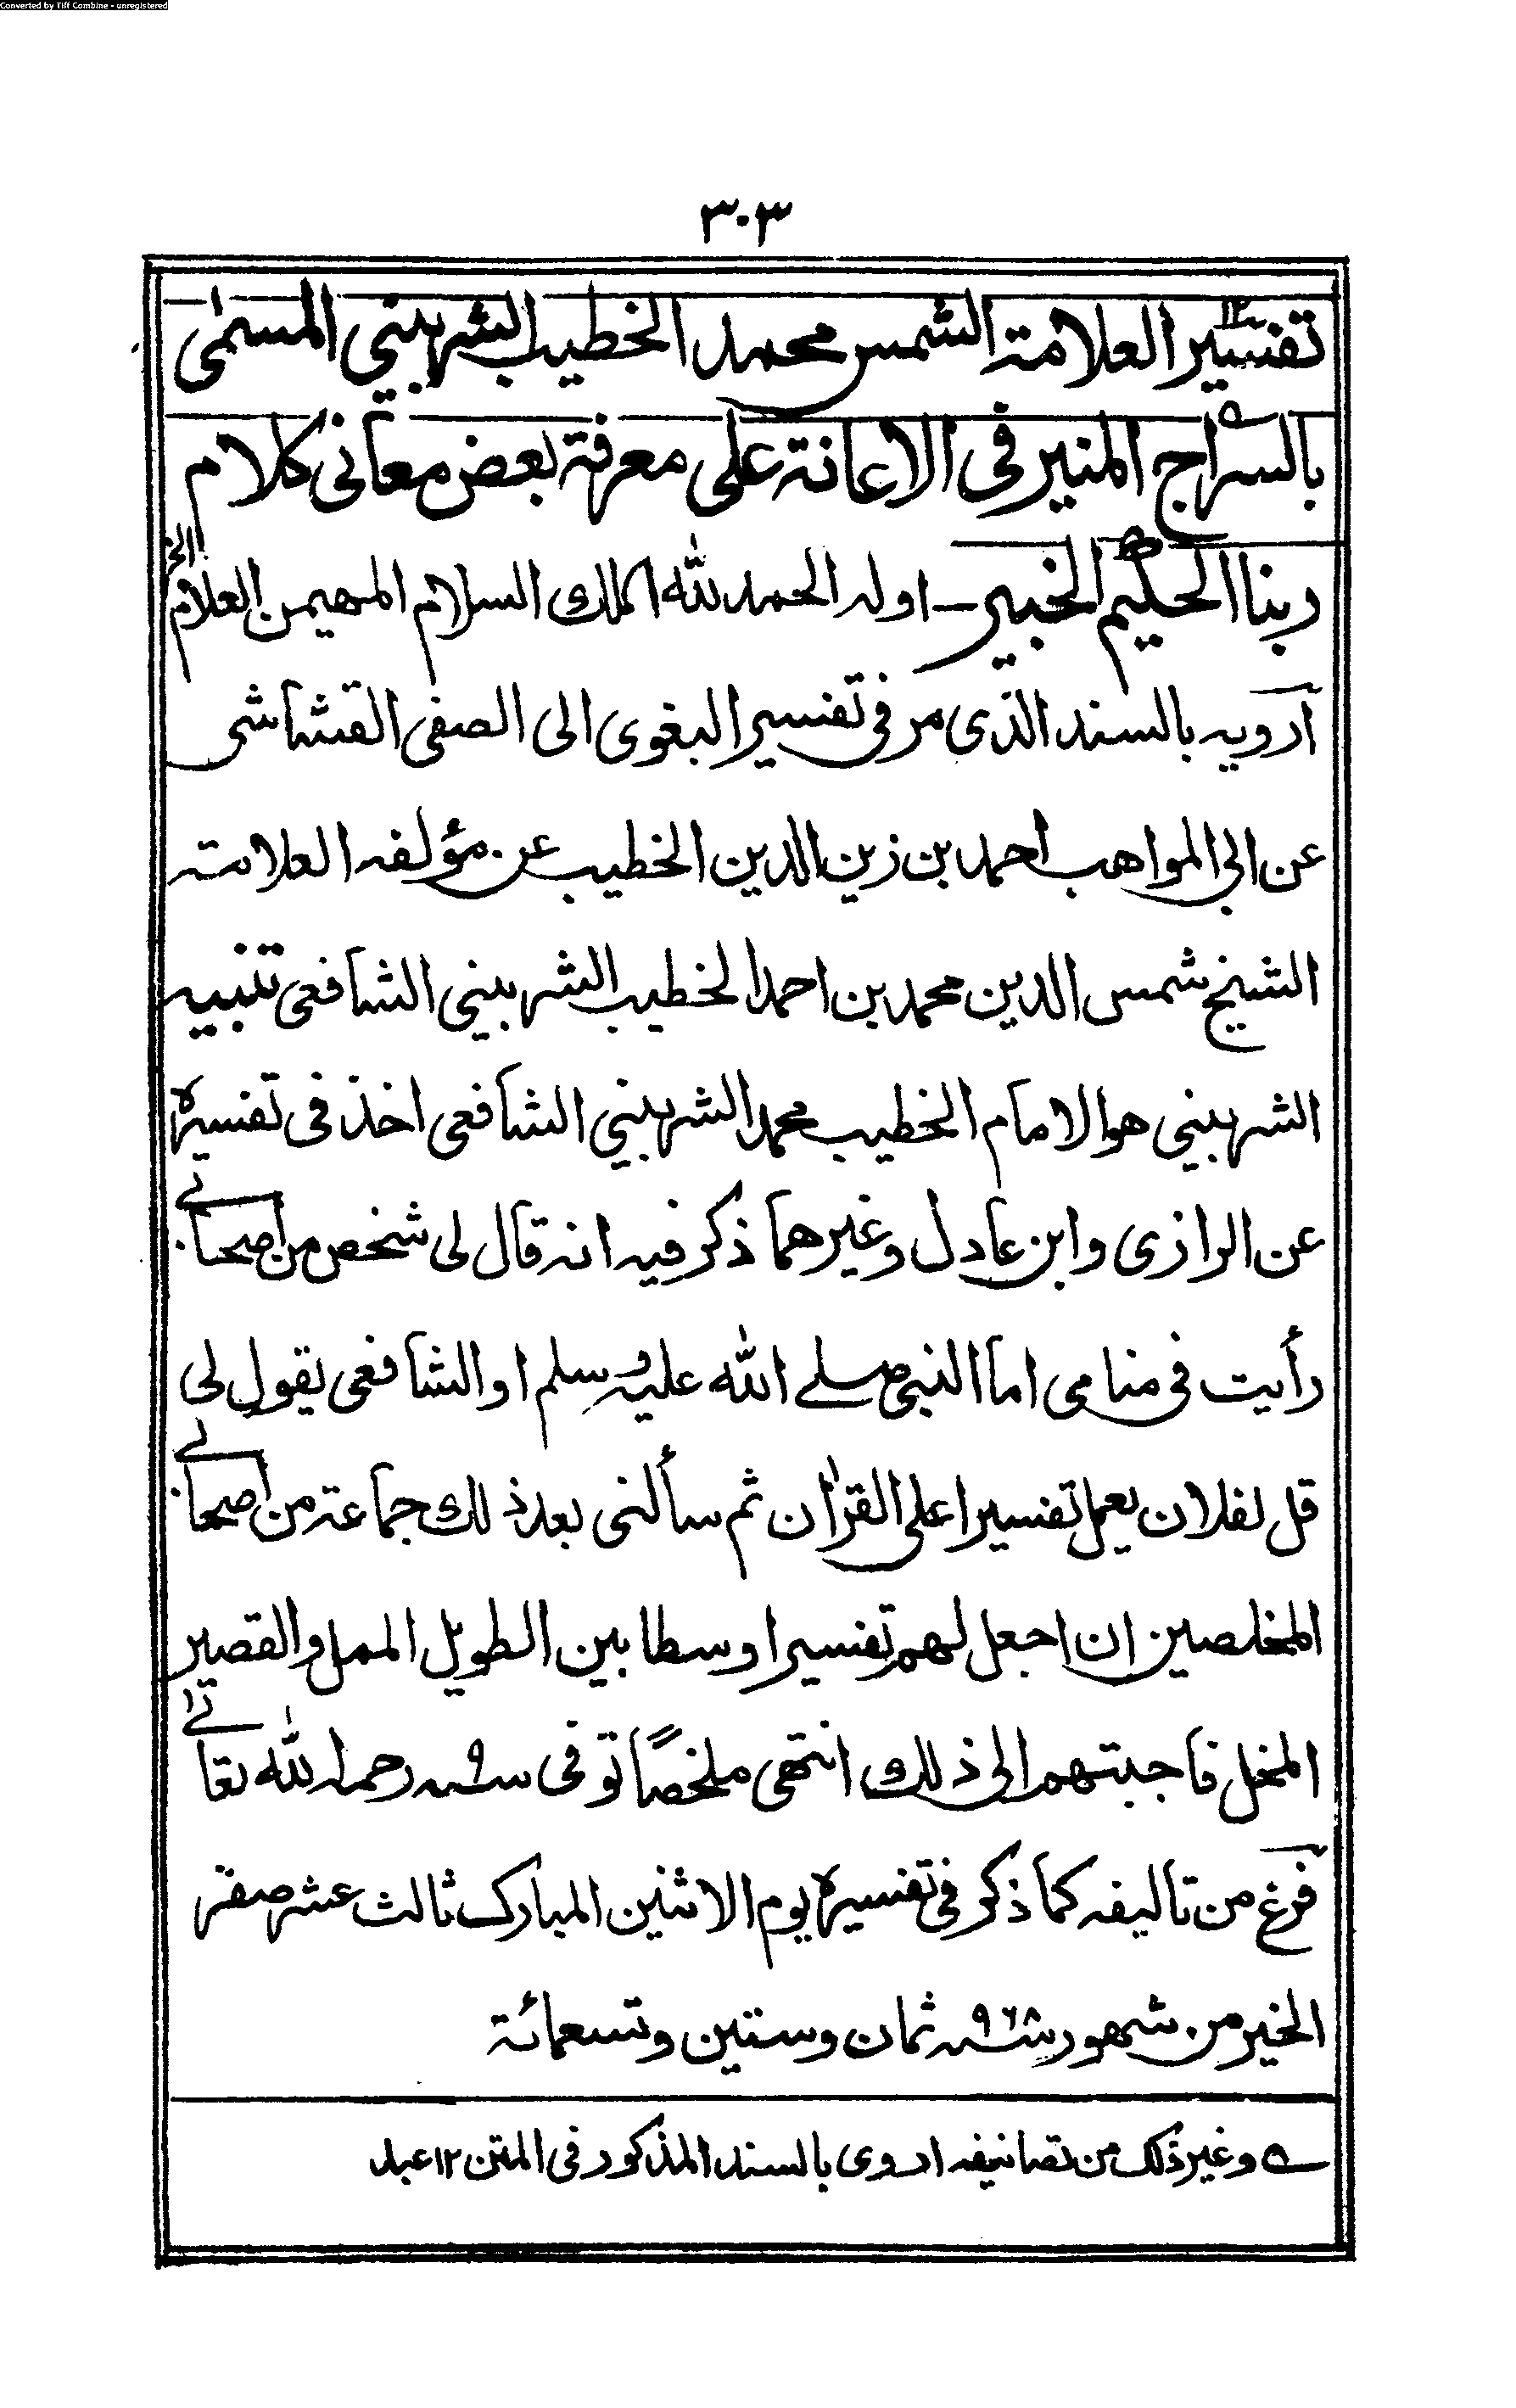 Converted by Tiff Combine - unregistered
٣٠٣
تفسير العلامة الشمس محمد الخطيب الشربيني المسمى
بالسراج المنير في الاعانة على معرفة بعض معاني كلام
ربنا الحكيم الخبير ـ اوله الحمد لله الملك السلام المهيمن العلام الخ
ارويه بالسند الذي مر في تفسير البغوى الى الصفى القشاشى
عن ابي المواهب احمد بن زين الدين الخطيب عن مؤلفه العلامة
الشيخ شمس الدين محمد بن احمد الخطيب الشربيني الشافعي تنبيه
الشربيني هو الامام الخطيب محمد الشربيني الشافعي اخذ في تفسيره
عن الرازي وابن عادل وغيرهما ذكر فيه انه قال لى شخص من اصحابي
رأيت في منامي اما النبي صلے الله عليه وسلم او الشافعي يقول لى
قل لفلان يعمل تفسيرا على القرآن ثم سألنى بعد ذلك جماعة من اصحابي
المخلصين ان اجعل لهم تفسيرا وسطا بين الطويل الممل والقصير
المخل فاجبتهم الى ذلك انتهى ملخصاً توفى سنه رحمه الله تعالے
فرغ من تاليفه كما ذكر في تفسيره يوم الاثنين المبارك ثالث عشر صفر
الخير من شهور سنه ٩٦٨ ثمان وستين وتسعمائة
وغير ذلك من تصانيفه اروى بالسند المذكور في المتن ١٢ عبد